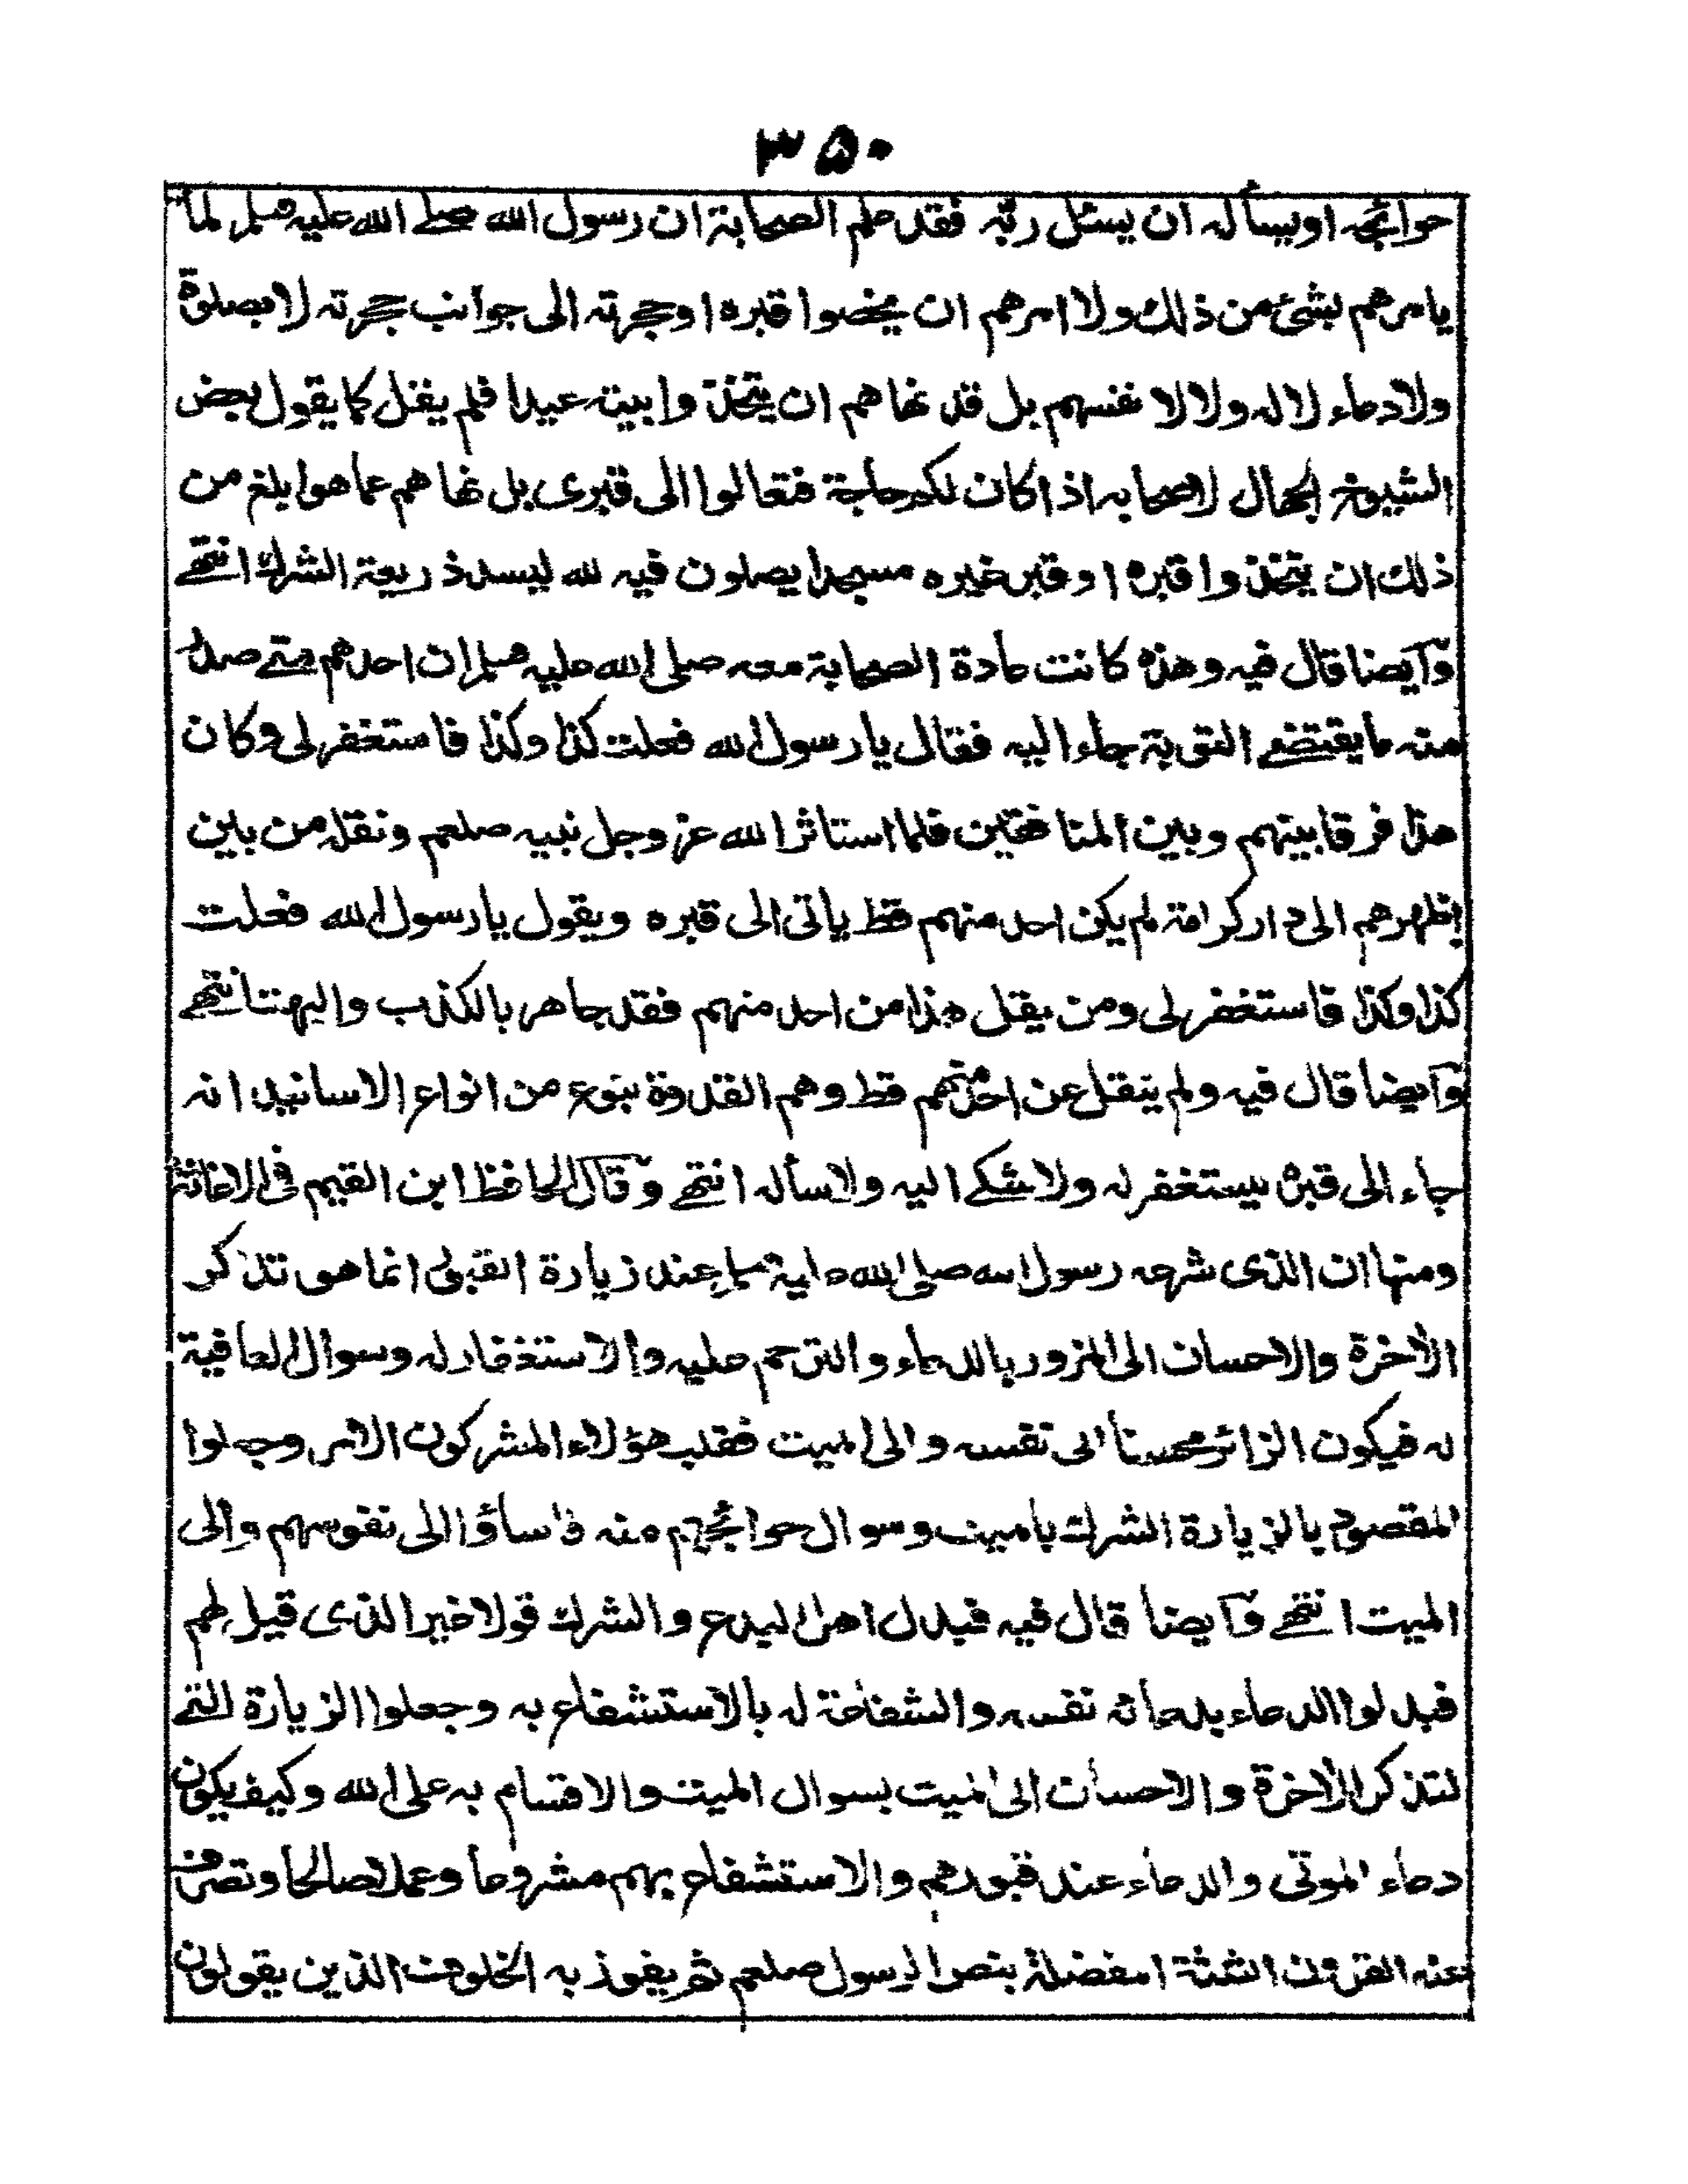 ۳۵۰
حوائجه او يسأله ان يسئل ربّه فقد علم الصحابة ان رسول الله صلے الله عليه وسلم لما
يامرهم بشئ من ذلك ولا امرهم ان يخصوا قبره او حجرته الى جوانب حجرته لا بصلوة
ولا دعاء لا له ولا لا نفسهم بل قد نهاهم ان يتخذوا بيته عيدا فلم يقل كما يقول بعض
الشيوخ الجهال لاصحابه اذا كان لكم حاجة فتعالوا الى قبرى بل نهاهم عما هو ابلغ من
ذلك ان يتخذوا قبره او قبر غيره مسجدا يصلون فيه لله ليسد ذريعة الشرك انتهے
وآيضا قال فيه وهذه كانت عادة الصحابة معه صلى الله عليه وسلم ان احدهم متے صدر
منه ما يقتضے التوبة جاء اليه فقال يا رسول الله فعلت كذا وكذا فاستغفر لى وكان
هذا فرقا بينهم وبين المنافقين فلما استاثر الله عز وجل نبيه صلعم ونقله من بين
اظهرهم الى دار كرامته لم يكن احد منهم قط ياتى الى قبره ويقول يا رسول الله فعلت
كذا وكذا فاستغفر لى ومن يقل هذا من احد منهم فقد جاهر بالكذب والبهتا انتهے
وآيضا قال فيه ولم ينقل عن احد منهم قط وهم القدوة بنوع من انواع الاسانيد انه
جاء الى قبره يستغفر له ولا شكے اليه ولا سأله انتهے وقال الحافظ ابن القيم فى الاغاثة
ومنها ان الذى شرعه رسول الله صلى الله عليه وسلم عند زيارة القبور انما هو تذكر
الأخرة والاحسان الى المزور بالدعاء والترحم عليه والاستغفار له وسوال العافية
له فيكون الزائر محسنا الى نفسه والى الميت فقلب هؤلاء المشركون الامر وجعلوا
المقصود بالزيارة الشرك بالميت وسوال حوائجهم منه فاساؤا الى نفوسهم والى
الميت انتهے وآيضا قال فيه فبدل اهل البدع والشرك قولا غير الذى قيل لهم
فبدلوا الدعاء بدعائه نفسه والشفاعة له بالاستشفاع به وجعلوا الزيارة التے
لتذكر الأخرة والاحسان الى الميت بسوال الميت والاقسام به على الله وكيف يكون
دعاء الموتى والدعاء عند قبورهم والاستشفاع بهم مشروعا وعملا صالحا وتصرف
عنه القرون الثلثة المفضلة بنص الرسول صلعم ثم يفوز به الخلوف الذين يقولون